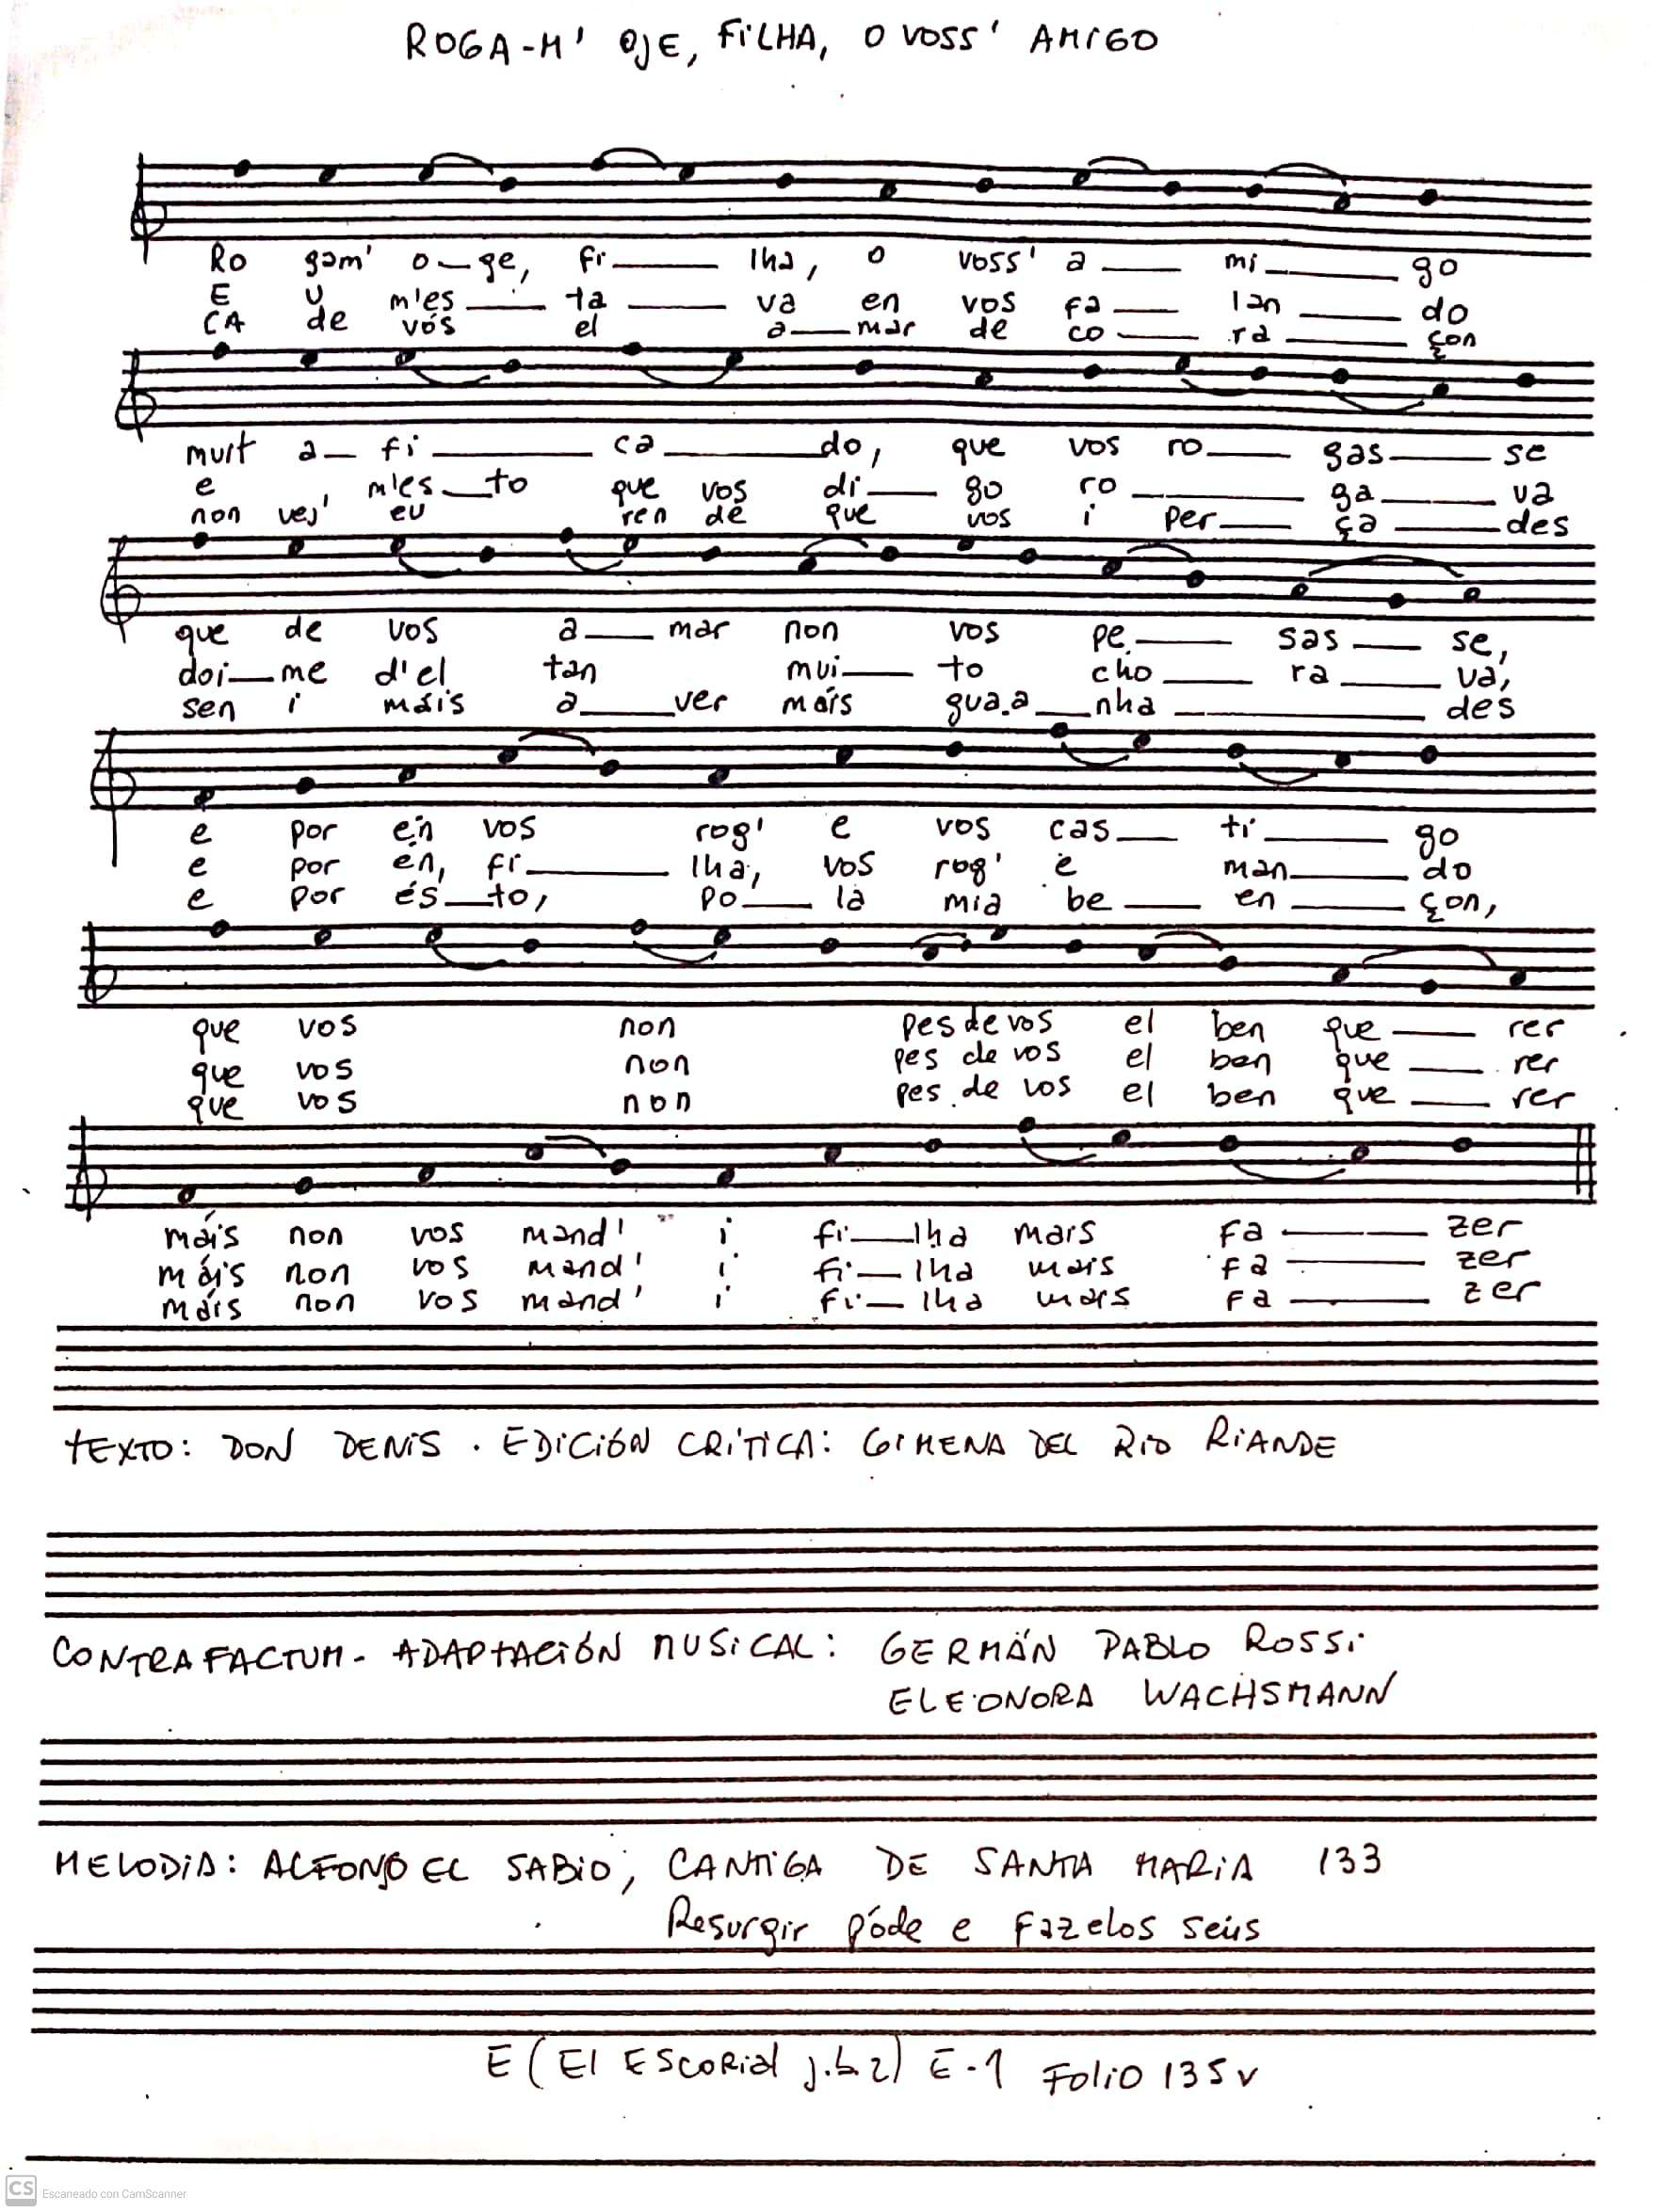 ROGA-M' OJE, FILHA, O VOSS' AMIGO
Ro gam' o_ge, fi___ lha, o voss' a___ mi___ go
E u m'es___ ta___ va en vos fa___ lan___ do
CA de vós el a___mar de co___ ra___ çon
muit a_ fi___ ca___do, que vos ro___ gas___ se
e m'es_to que vos di___ go ro___ ga___ va
non vej' eu ren de que vos i per___ ça___des
que de vos a___mar non vos pe___ sas___ se,
doi_me d'el tan mui___ to cho___ ra___ va,
sen i máis a___ver máis gua.a_nha___ des
e por én vos rog' e vos cas___ ti___ go
e por én, fi___ lha, vos rog' e man___ do
e por és_to, po___ la mia be___ en___ çon,
que vos non pes de vos el ben que___ rer
que vos non pes de vos el ben que___ rer
que vos non pes de vos el ben que___ rer
máis non vos mand' i fi___lha mais fa___ zer
máis non vos mand' i fi___lha mais fa___ zer
máis non vos mand' i fi___lha mais fa___ zer
TEXTO: DON DENIS. EDICIÓN CRÍTICA: GIMENA DEL RIO RIANDE
CONTRAFACTUM- ADAPTACIÓN MUSICAL: GERMÁN PABLO ROSSI
ELEONORA WACHSMANN
MELODIA: ALFONSO EL SABIO, CANTIGA DE SANTA MARIA 133
Resurgir póde e fazelos séus
E (El ESCORIAl j.b.2) E-1 Folio 135v
CS Escaneado con CamScanner